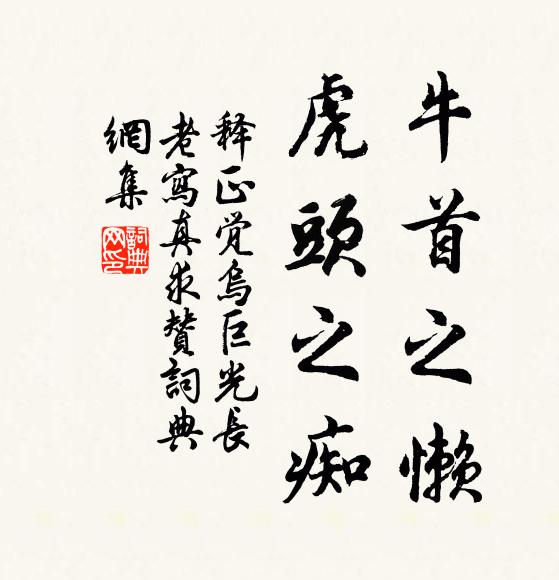 牛首之懒
虎頭之痴
释正觉烏巨光長
老寫真求贊詞典
網集
詞典网印